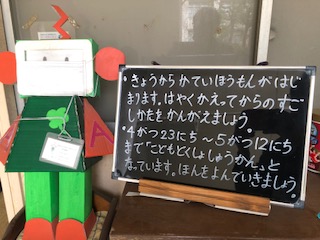 ・きょうからかていほうもんがはじ
まります。はやくかえってからのすご
しかたをかんがえましょう。
・4がつ23にち〜5がつ12にち
まで「こどもどくしょしゅうかん」と
なっています。ほんをよんでいきましょう。
A